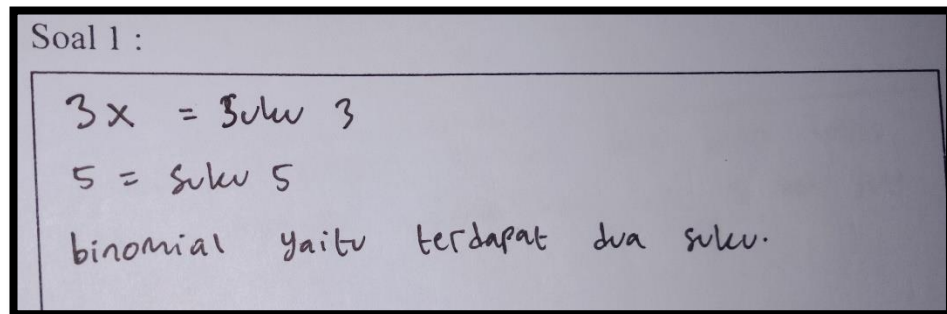 Soal 1 :
3x = Suku 3
5 = Suku 5
binomial yaitu terdapat dua suku.